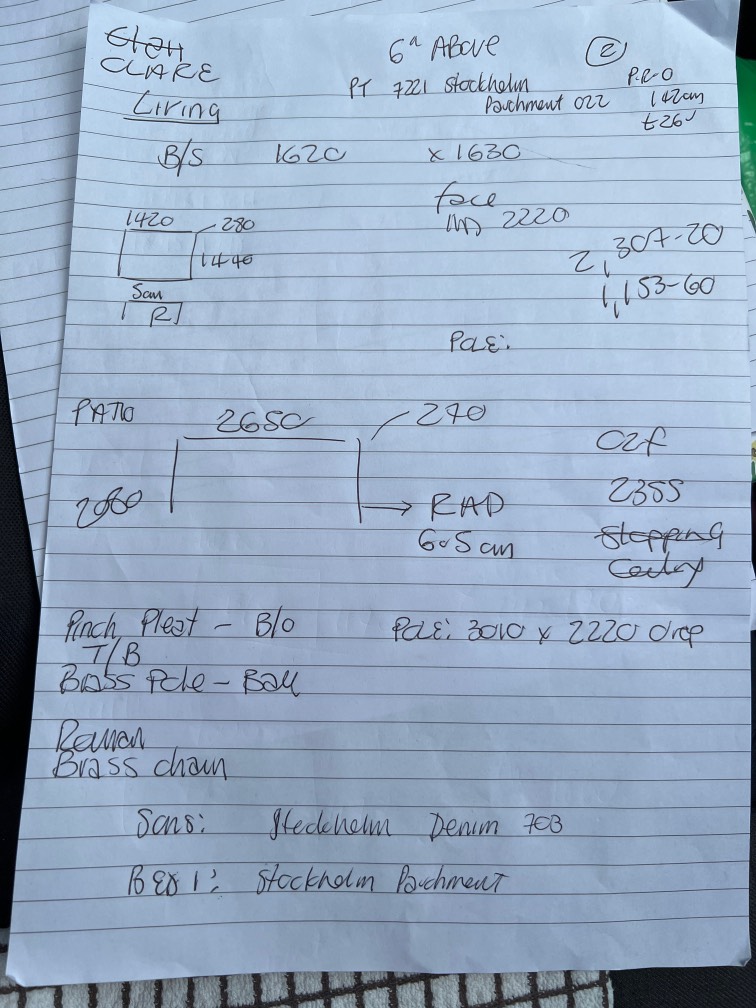 CLARE
6" ABOVE
2
Living
PT 7221 Stockholm
Parchment 022
P.R-O
142cm
£26
B/S 1620 x 1630
face
2220
1420 280
1440
2,307-20
1,153-60
5cm
R
Pole:
PATIO 2650 270
2080
→ RAD
6.5cm
2355
Pinch Pleat - B/O
T/B
Pole: 3010 x 2220 drop
Brass Pole - Ball
Roman
Brass chain
Sons: Stockholm Denim 703
BED 1: Stockholm Parchment